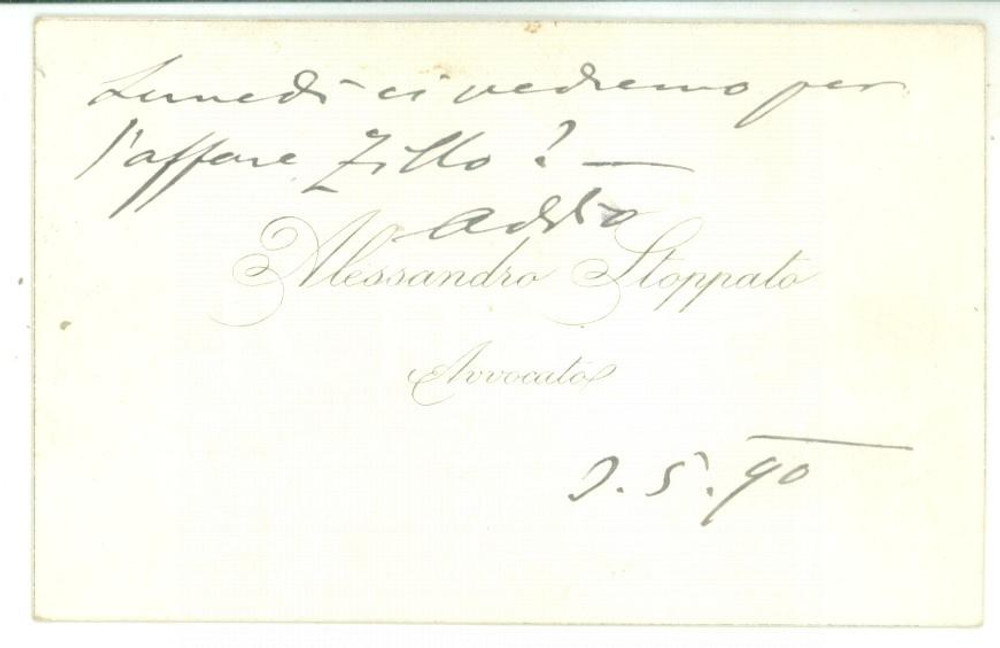 Lunedì ci vedremo per
l'affare Zillo? —
addio
Alessandro Stoppato
Avvocato
5.90